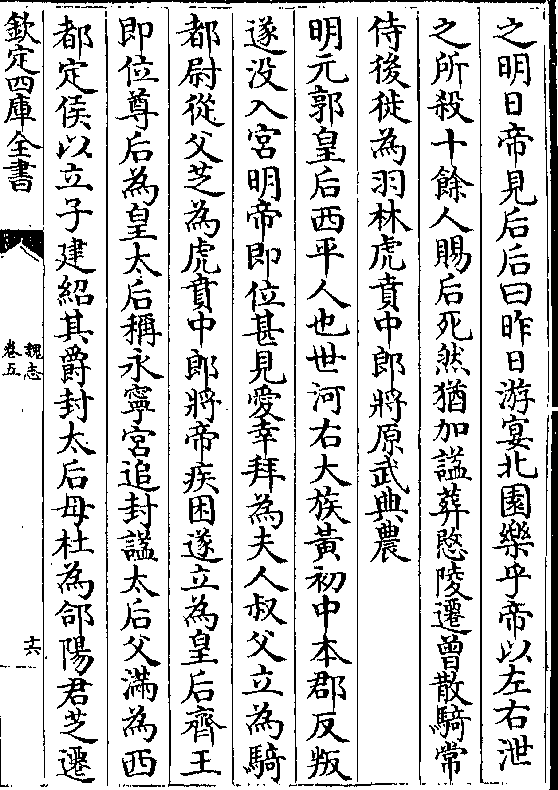 之明日帝見后后曰昨日游宴北園樂乎帝以左右泄
之所殺十餘人賜后死然猶加諡葬愍陵遷曾散騎常
侍後徙為羽林虎賁中郎將原武典農
明元郭皇后西平人也世河右大族黃初中本郡反叛
遂没入宮明帝即位甚見愛幸拜為夫人叔父立為騎
都尉從父芝為虎賁中郎將帝疾困遂立為皇后齊王
即位尊后為皇太后稱永寧宮追封諡太后父滿為西
都定侯以立子建紹其爵封太后母杜為郃陽君芝遷
欽定四庫全書
魏志
卷五
十六